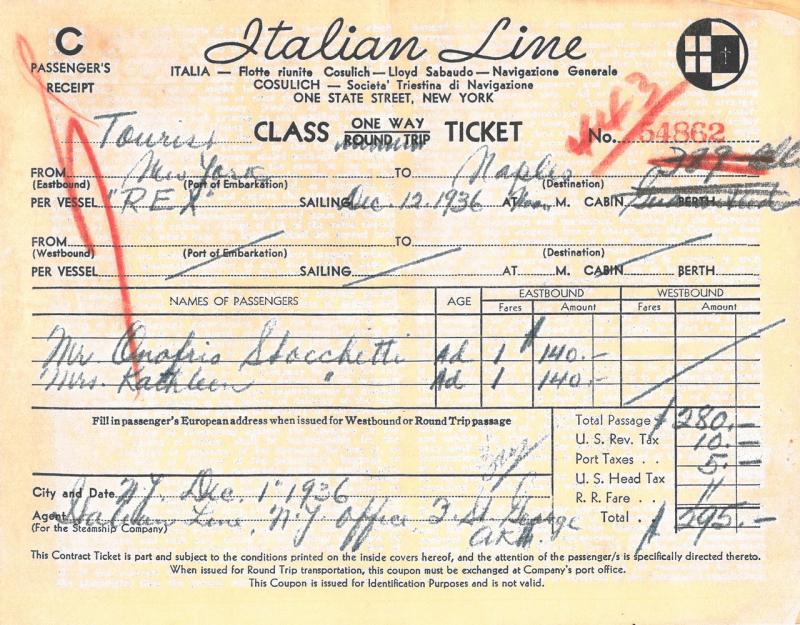 C
PASSENGER'S
RECEIPT
Italian Line
ITALIA — Flotte riunite Cosulich — Lloyd Sabaudo — Navigazione Generale
COSULICH — Societa' Triestina di Navigazione
ONE STATE STREET, NEW YORK
Tourist CLASS ONE WAY ROUND TRIP TICKET No. 54862
FROM New York TO Naples
(Eastbound) (Port of Embarkation) (Destination)
PER VESSEL "REX" SAILING Dec. 12. 1936 AT Noon M. CABIN BERTH
FROM TO
(Westbound) (Port of Embarkation) (Destination)
PER VESSEL SAILING AT M. CABIN BERTH
NAMES OF PASSENGERS AGE EASTBOUND WESTBOUND
Fares Amount Fares Amount
Mr. Onofrio Stocchetti Ad 1 $140.—
Mrs. Kathleen " Ad 1 140.—
Fill in passenger's European address when issued for Westbound or Round Trip passage
Total Passage $280.—
U. S. Rev. Tax 10.—
Port Taxes . . 5.—
U. S. Head Tax "
R. R. Fare . .
Total . $295.—
City and Date N.Y. Dec. 1" 1936
Agent Italian Line, N.Y. Office, St George
(For the Steamship Company)
This Contract Ticket is part and subject to the conditions printed on the inside covers hereof, and the attention of the passenger/s is specifically directed thereto.
When issued for Round Trip transportation, this coupon must be exchanged at Company's port office.
This Coupon is issued for Identification Purposes and is not valid.